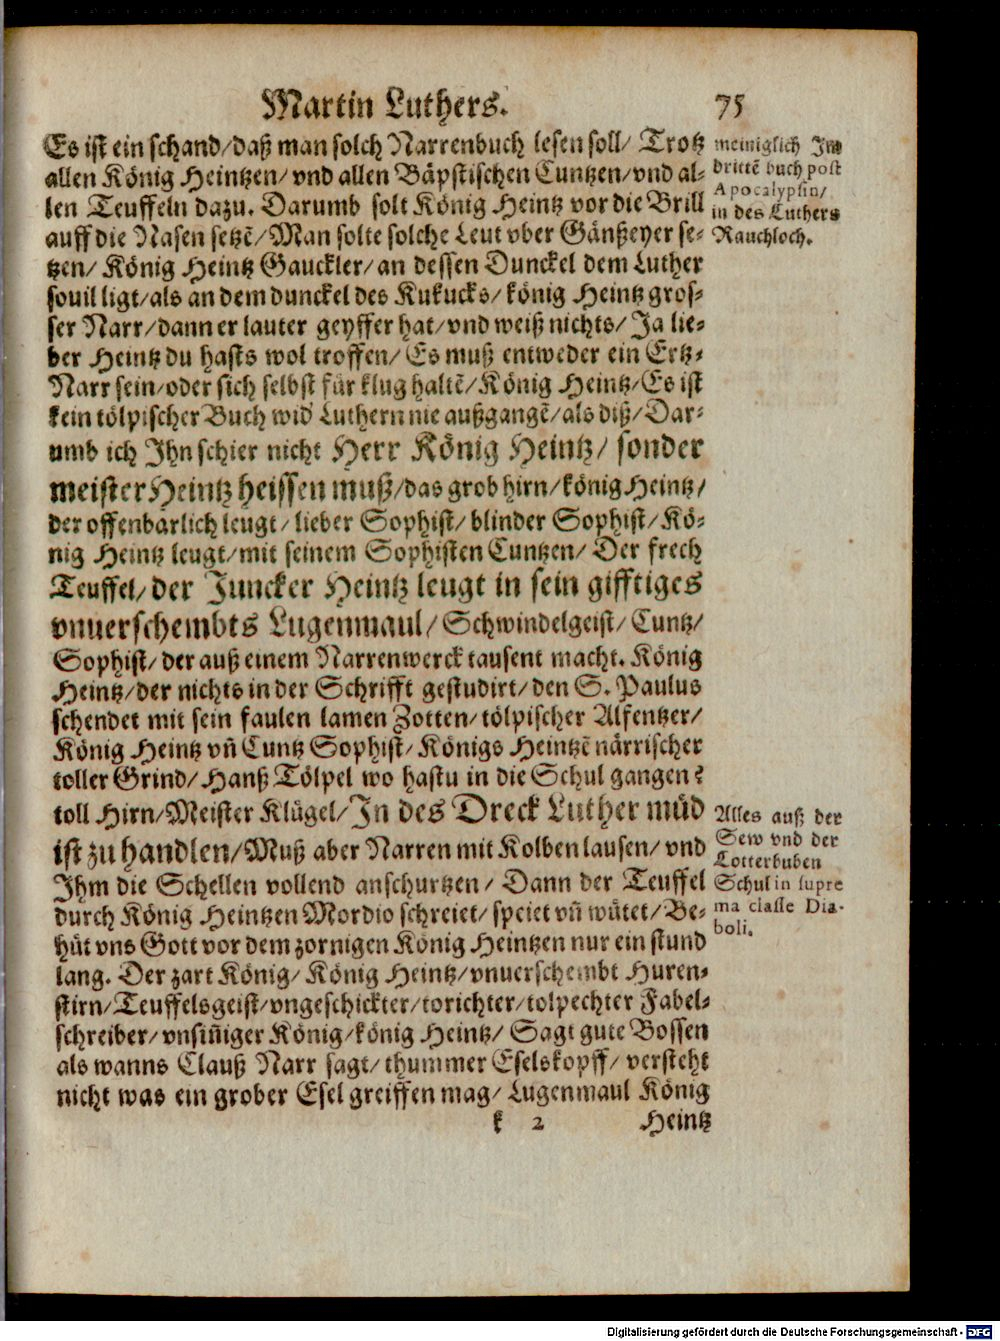 Martin Luthers. 75
Es ist ein schand/daß man solch Narrenbuch lesen soll/ Trotz
allen König Heintzen/ vnd allen Bäpstischen Cuntzen/vnd al-
len Teuffeln dazu. Darumb solt König Heintz vor die Brill
auff die Nasen setzē/Man solte solche Leut vber Gänßeyer se-
tzen/ König Heintz Gauckler/ an dessen Dunckel dem Luther
souil ligt/als an dem dunckel des Kukucks/ könig Heintz gros-
ser Narr/dann er lauter geyffer hat/vnd weiß nichts/ Ja lie-
ber Heintz du hasts wol troffen/ Es muß entweder ein Ertz-
Narr sein/oder sich selbst für klug haltē/König Heintz/Es ist
kein tölpischer Buch wid' Luthern nie außgangē/als diß/Dar-
umb ich Ihn schier nicht Herr König Heintz/ sonder
meister Heintz heissen muß/das grob hirn/könig Heintz/
der offenbarlich leugt/lieber Sophist/blinder Sophist/Kö-
nig Heintz leugt/mit seinem Sophisten Cuntzen/ Der frech
Teuffel/der Juncker Heintz leugt in sein gifftiges
vnuerschembts Lugenmaul/Schwindelgeist/Cuntz/
Sophist/der auß einem Narrenwerck tausent macht. König
Heintz/der nichts in der Schrifft gestudirt/den S. Paulus
schendet mit sein faulen lamen Zotten/tölpischer Alfentzer/
König Heintz vñ Cuntz Sophist/Königs Heintzē närrischer
toller Grind/Hanß Tölpel wo hastu in die Schul gangen?
toll Hirn/Meister Klügel/In des Dreck Luther müd
ist zu handlen/Muß aber Narren mit Kolben lausen/vnd
Ihm die Schellen vollend anschurtzen/ Dann der Teuffel
durch König Heintzen Mordio schreiet/speiet vñ wütet/Be-
hüt vns Gott vor dem zornigen König Heintzen nur ein stund
lang. Der zart König/ König Heintz/vnuerschembt Huren-
stirn/Teuffelsgeist/vngeschickter/torichter/tolpechter Fabel-
schreiber/vnsiñiger König/könig Heintz/ Sagt gute Bossen
als wanns Clauß Narr sagt/thummer Eselskopff/ versteht
nicht was ein grober Esel greiffen mag/ Lugenmaul König
k 2 Heintz
meiniglich Im
drittē buch post
Apocalypsin/
in des Luthers
Rauchloch.
Alles auß der
Sew vnd der
Lotterbuben
Schul in supre
ma classe Dia-
boli.
Digitalisierung gefördert durch die Deutsche Forschungsgemeinschaft - DFG